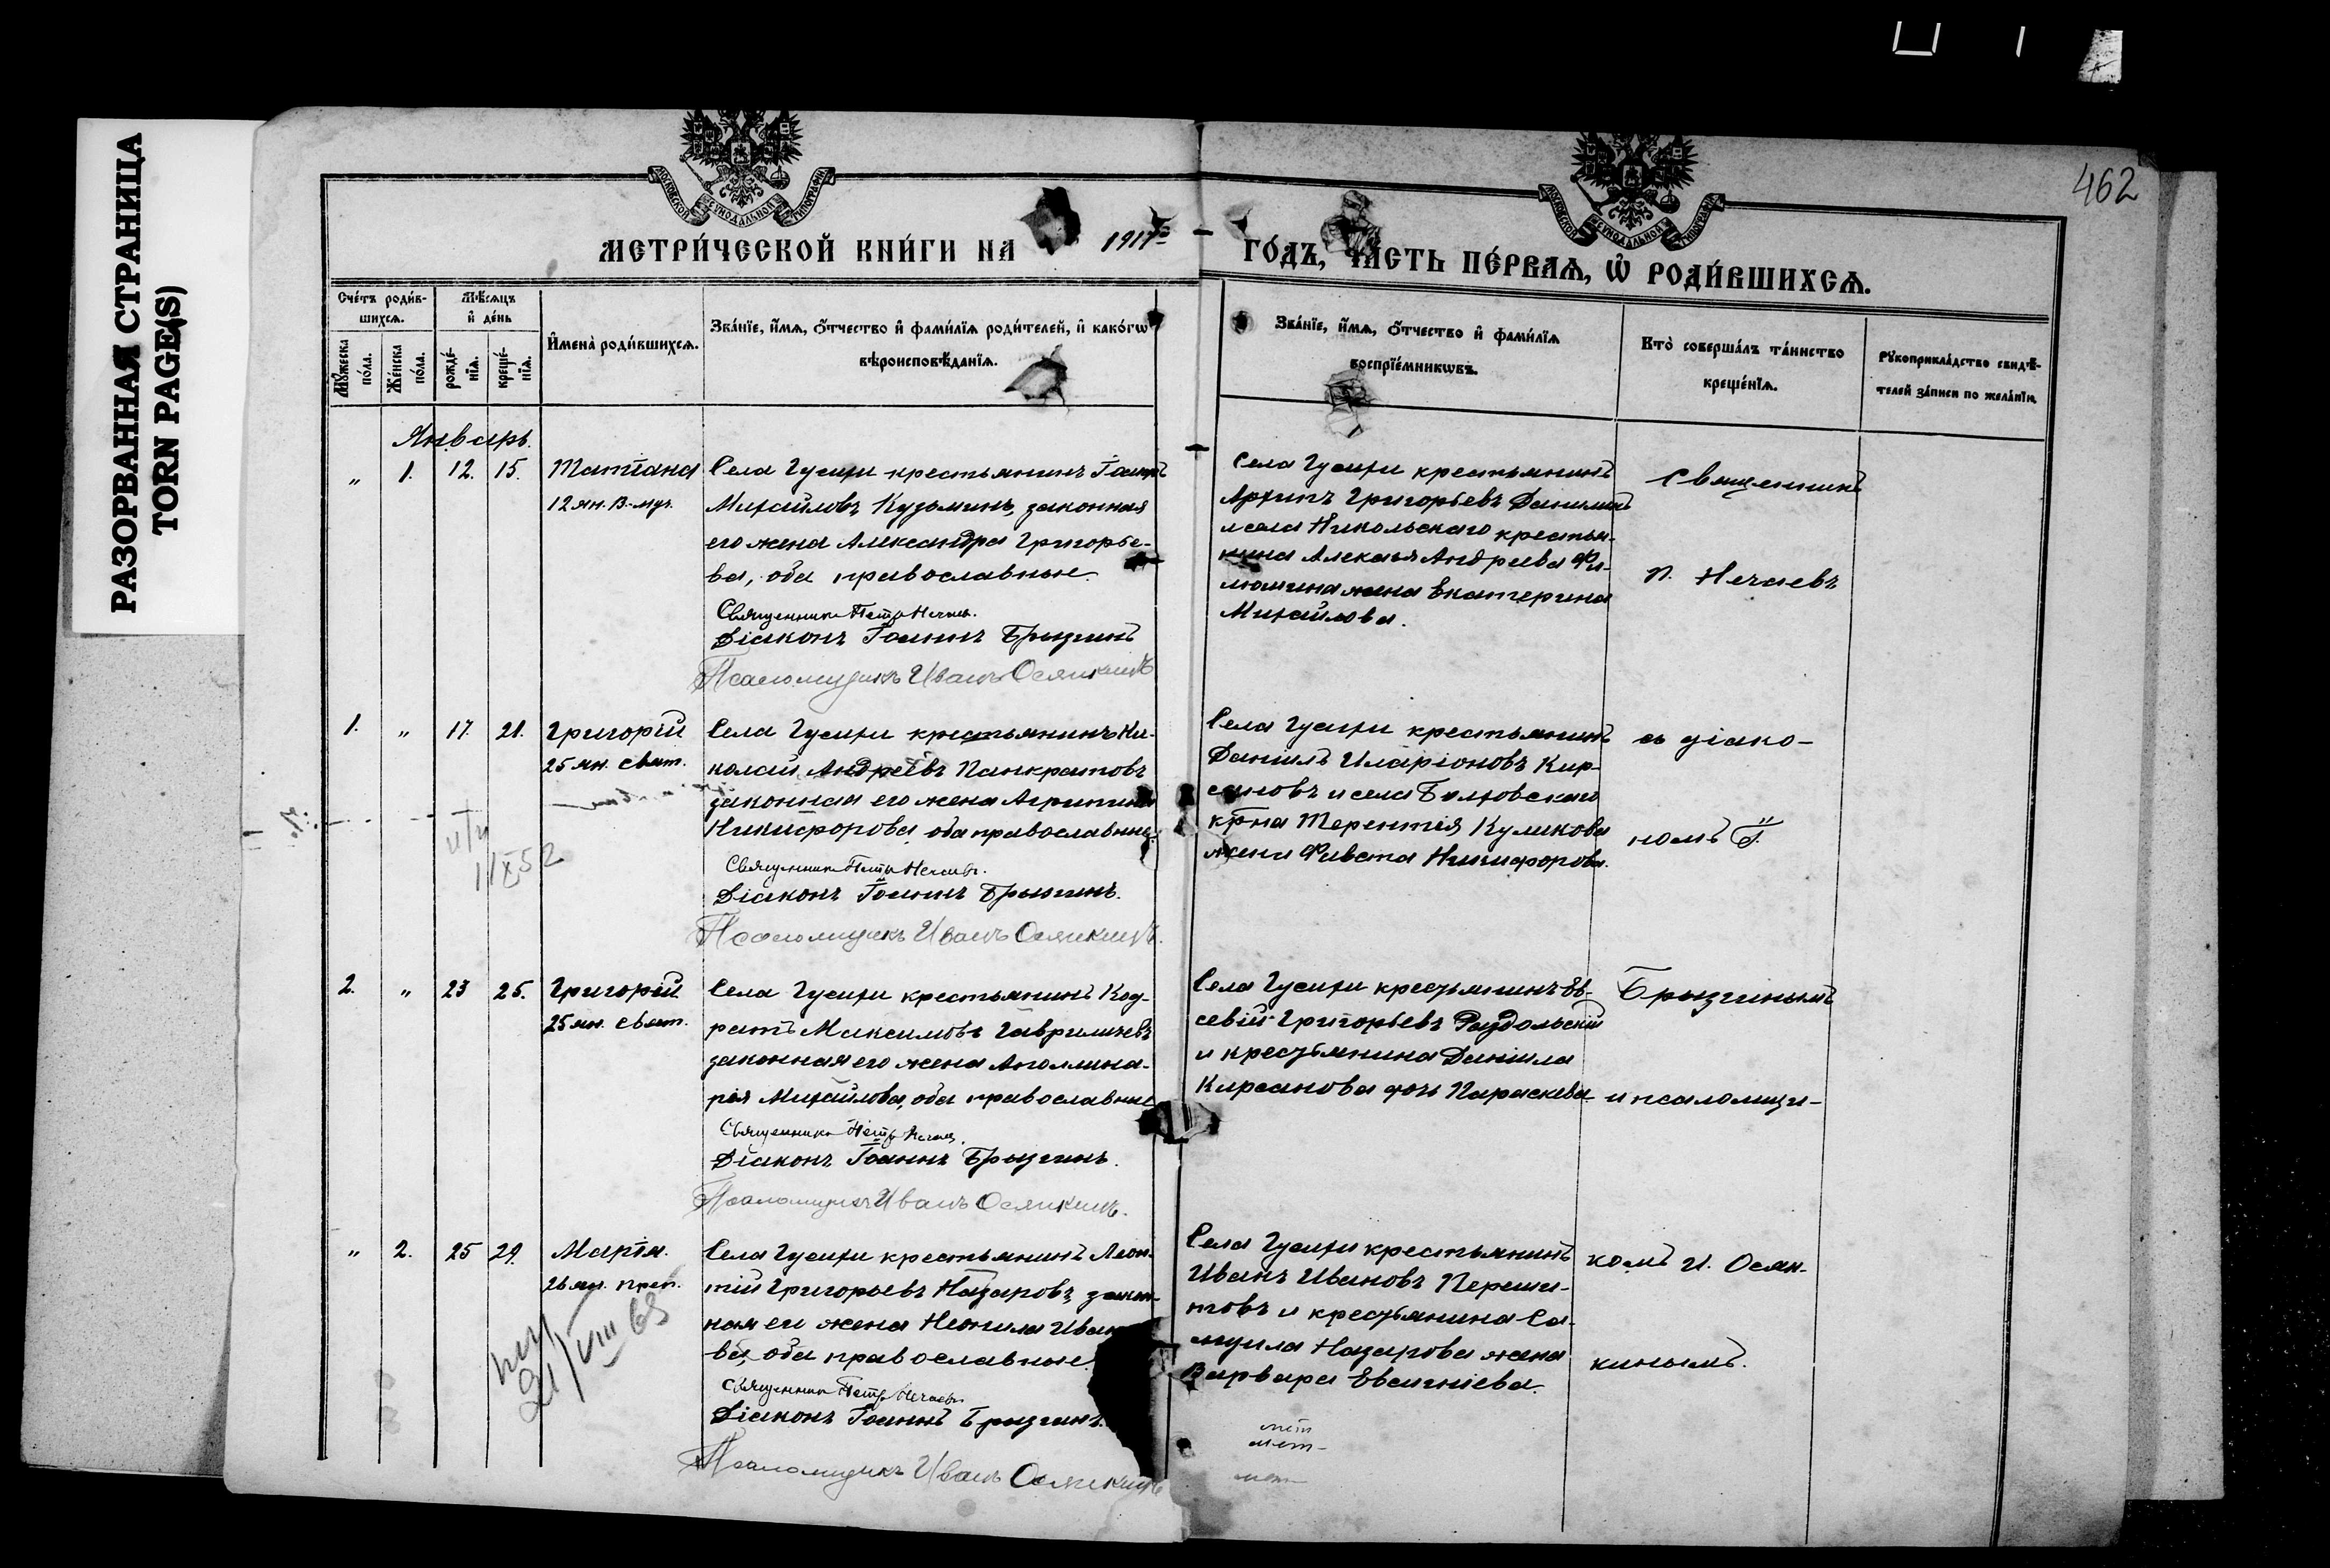 РАЗОРВАННАЯ СТРАНИЦА
TORN PAGE(S)
462
МОСКОВСКОЙ СѴНОДАЛЬНОЙ ТИПОГРАФІИ
МОСКОВСКОЙ СѴНОДАЛЬНОЙ ТИПОГРАФІИ
МЕТРИ́ЧЕСКОЙ КНИ́ГИ НА 1917 ГО́ДЪ, ЧА́СТЬ ПЕ́РВАѦ, Ѡ РОДИ́ВШИХСѦ.
Сче́тъ роди́в-
шихсѧ.
Мꙋ́жеска
по́ла.
Же́нска
по́ла.
Мѣ́сѧцъ
и҆ де́нь
рожде́-
нїѧ.
креще́-
нїѧ.
И҆мена̀ роди́вшихсѧ.
Зва́нїе, и҆́мѧ, о҆́тчество и҆ фами́лїѧ роди́телей, и҆ како́гѡ
вѣроисповѣ́данїѧ.
Зва́нїе, и҆́мѧ, о҆́тчество и҆ фами́лїѧ
воспрїе́мникѡвъ.
Кто̀ соверша́лъ та́инство
креще́нїѧ.
Рꙋкоприкла́дство свидѣ́-
телей за́писи по жела́нїю.
Январь.
" 1. 12. 15. Татіана
12 ян. В.-муч.
Села Гусихи крестьянинъ Іоаннъ
Михайловъ Кузьминъ, законная
его жена Александра Григорье-
ва, оба православные.
Священникъ Петръ Нечаевъ.
Діаконъ Іоаннъ Брызгинъ
Псаломщикъ Иванъ Осянкинъ
Села Гусихи крестьянинъ
Архипъ Григорьевъ Данилинъ
и села Никольскаго крестья-
нина Алексѣя Андреева Фи-
люшина жена Екатерина
Михайлова.
Священникъ
П. Нечаевъ
1. " 17. 21. Григорій
25 ян. свят.
Села Гусихи крестьянинъ Ни-
колай Андреевъ Панкратовъ
законная его жена Агрипина
Никифорова, оба православные.
Священникъ Петръ Нечаевъ.
Діаконъ Іоаннъ Брызгинъ.
Псаломщикъ Иванъ Осянкинъ.
Села Гусихи крестьянинъ
Даніилъ Иларіоновъ Кир-
сановъ и села Балтовскаго
кр-на Терентія Куликова
жена Фивета Никифорова.
съ діако-
номъ І.
11/X 52
2. " 23 25. Григорій
25 ян. свят.
Села Гусихи крестьянинъ Код-
ратъ Максимовъ Гавриличевъ
законная его жена Аполлина-
рія Михайлова, оба православные
Священникъ Петръ Нечаевъ.
Діаконъ Іоаннъ Брызгинъ.
Псаломщикъ Иванъ Осянкинъ.
Села Гусихи крестьянинъ Ев-
севій Григорьевъ Раздольскій
и крестьянина Даніила
Кирсанова дочь Параскева.
Брызгинымъ
и псаломщи-
" 2. 25 29. Марія.
26 ян. преп.
21/VIII 68
Села Гусихи крестьянинъ Леон-
тій Григорьевъ Назаровъ, закон-
ная его жена Неонила Ивано-
ва, оба православные.
Священникъ Петръ Нечаевъ
Діаконъ Іоаннъ Брызгинъ.
Псаломщикъ Иванъ Осянкинъ
Села Гусихи крестьянинъ
Иванъ Ивановъ Переши-
товъ и крестьянина Са-
муила Назарова жена
Варвара Евсигніева.
комъ И. Осян-
кинымъ.